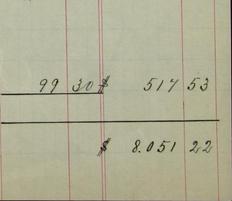 99 30 $ 517 53
$ 8.051 22